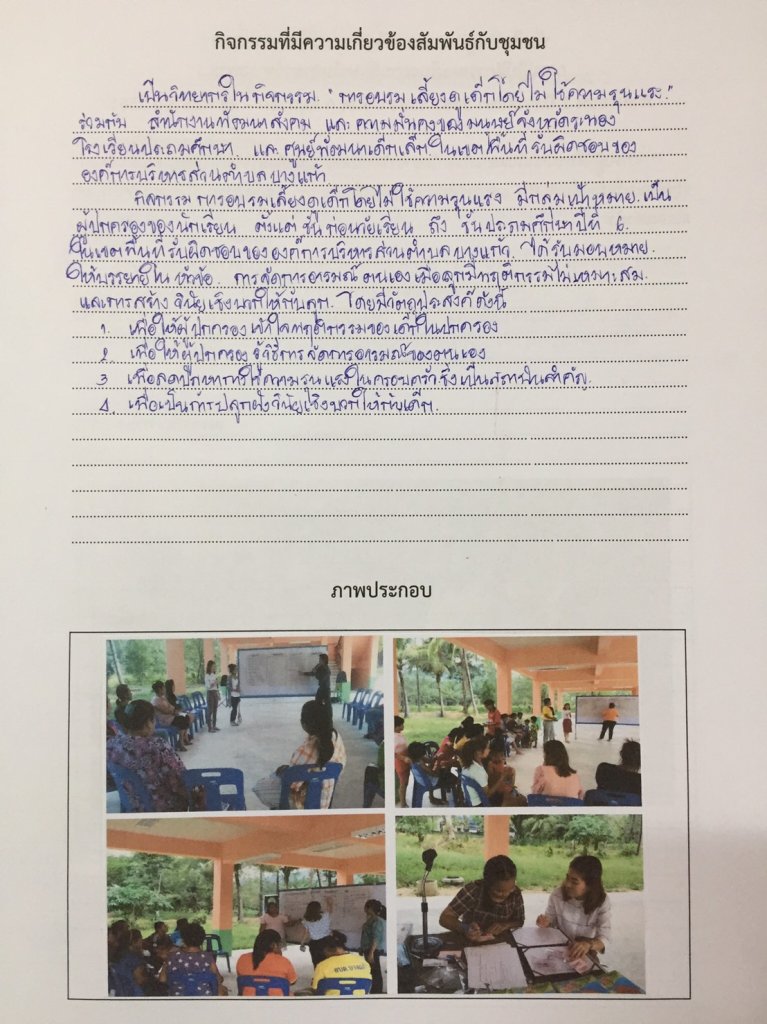 กิจกรรมที่มีความเกี่ยวข้องสัมพันธ์กับชุมชน
เป็นวิทยากรในกิจกรรม "การอบรมเลี้ยงดูเด็กโดยไม่ใช้ความรุนแรง"
ร่วมกับ สำนักงานพัฒนาสังคม และความมั่นคงของมนุษย์จังหวัดระนอง
โรงเรียนประถมศึกษา และศูนย์พัฒนาเด็กเล็กในเขตพื้นที่รับผิดชอบของ
องค์การบริหารส่วนตำบลบางแก้ว
กิจกรรม การอบรมเลี้ยงดูเด็กโดยไม่ใช้ความรุนแรง มีกลุ่มเป้าหมาย เป็น
ผู้ปกครองของนักเรียน ตั้งแต่ ชั้นก่อนวัยเรียน ถึง ชั้นประถมศึกษาปีที่ 6
ในเขตพื้นที่รับผิดชอบขององค์การบริหารส่วนตำบลบางแก้ว ได้รับมอบหมาย
ให้บรรยายใน หัวข้อ การจัดการอารมณ์ตนเองเมื่อลูกมีพฤติกรรมไม่เหมาะสม
และการสร้างวินัยเชิงบวกให้กับลูก โดยมีวัตถุประสงค์ดังนี้
1. เพื่อให้ผู้ปกครองเข้าใจพฤติกรรมของเด็กในปกครอง
2. เพื่อให้ผู้ปกครองรู้วิธีการจัดการอารมณ์ของตนเอง
3. เพื่อลดปัญหาการใช้ความรุนแรงในครอบครัวซึ่งเป็นสถาบันสำคัญ
4. เพื่อเป็นการปลูกฝังวินัยเชิงบวกให้กับเด็ก
ภาพประกอบ